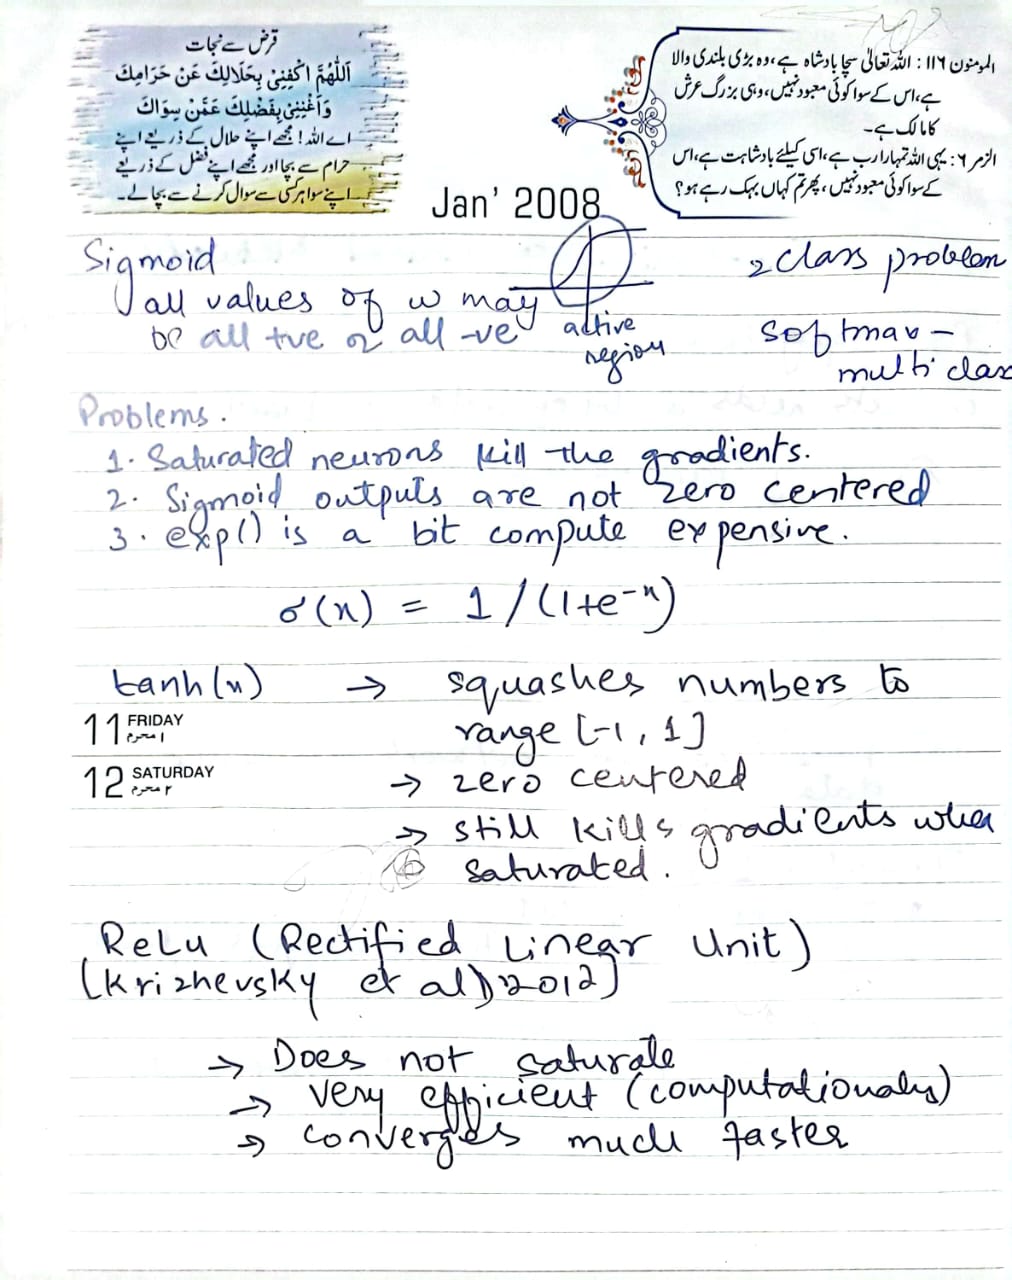 قرض سے نجات
اَللّٰهُمَّ اكْفِنِيْ بِحَلَالِكَ عَنْ حَرَامِكَ
وَاَغْنِنِيْ بِفَضْلِكَ عَمَّنْ سِوَاكَ
اے اللہ! مجھے اپنے حلال کے ذریعے اپنے
حرام سے بچا اور مجھے اپنے فضل کے ذریعے
اپنے سوا ہر کسی سے سوال کرنے سے بچا لے۔
المومنون ۱۱۶: اللہ تعالیٰ سچا بادشاہ ہے، وہ بڑی بلندی والا
ہے، اس کے سوا کوئی معبود نہیں، وہی بزرگ عرش
کا مالک ہے۔
الزمر ۶: یہی اللہ تمہارا رب ہے، اسی کیلئے بادشاہت ہے، اس
کے سوا کوئی معبود نہیں، پھر تم کہاں بہک رہے ہو؟
Jan' 2008
Sigmoid
all values of w may
be all +ve or all -ve
active
region
2 class problem
Softmax -
multi class
Problems.
1. Saturated neurons kill the gradients.
2. Sigmoid outputs are not zero centered
3. exp() is a bit compute expensive.
σ(x) = 1/(1+e⁻ˣ)
tanh(x) → squashes numbers to
11 FRIDAY ۱ محرم
range [-1, 1]
12 SATURDAY ۲ محرم
→ zero centered
→ still kills gradients when
saturated.
ReLu (Rectified Linear Unit)
[Krizhevsky et al, 2012]
→ Does not saturate
→ very efficient (computationaly)
→ converges much faster